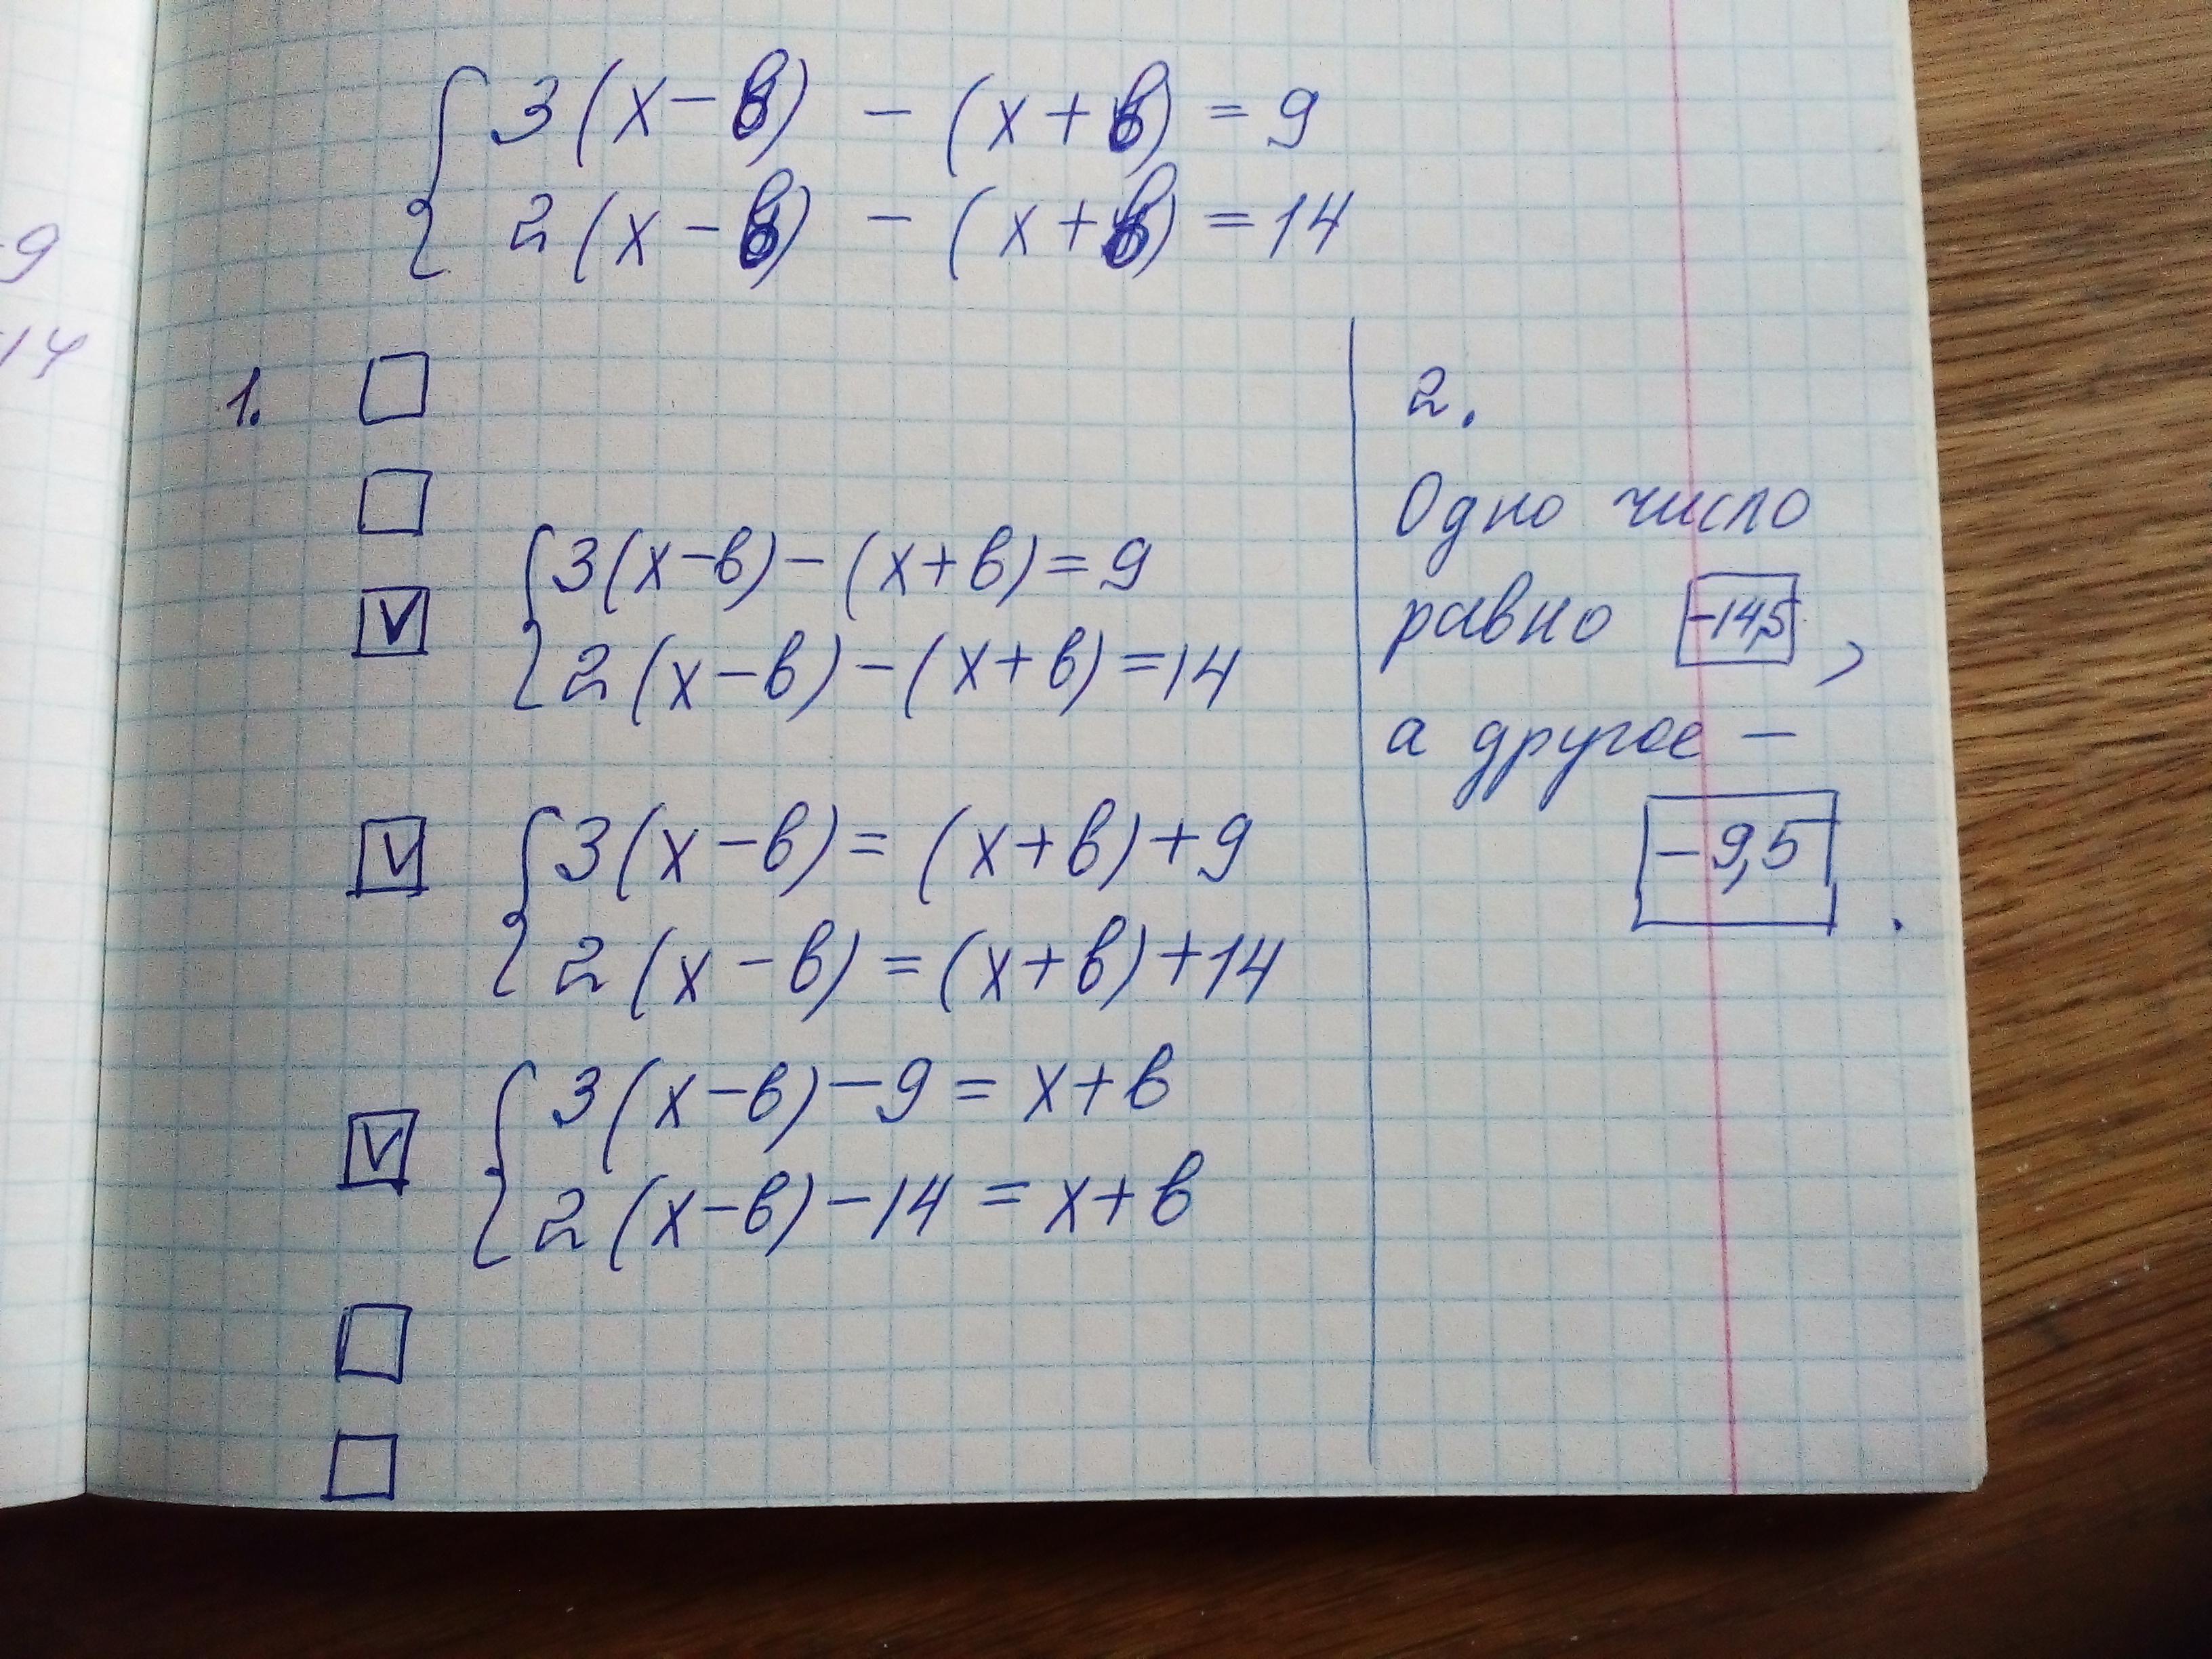 3(x-в) - (x+в) = 9
2(x-в) - (x+в) = 14
9
14
1.
3(x-в)-(x+в)=9
2(x-в)-(x+в)=14
V
3(x-в)= (x+в)+9
V
2(x-в)=(x+в)+14
3(x-в)-9= x+в
V
2(x-в)-14 = x+в
2.
Одно число
равно -14,5 ,
а другое -
-9,5 .